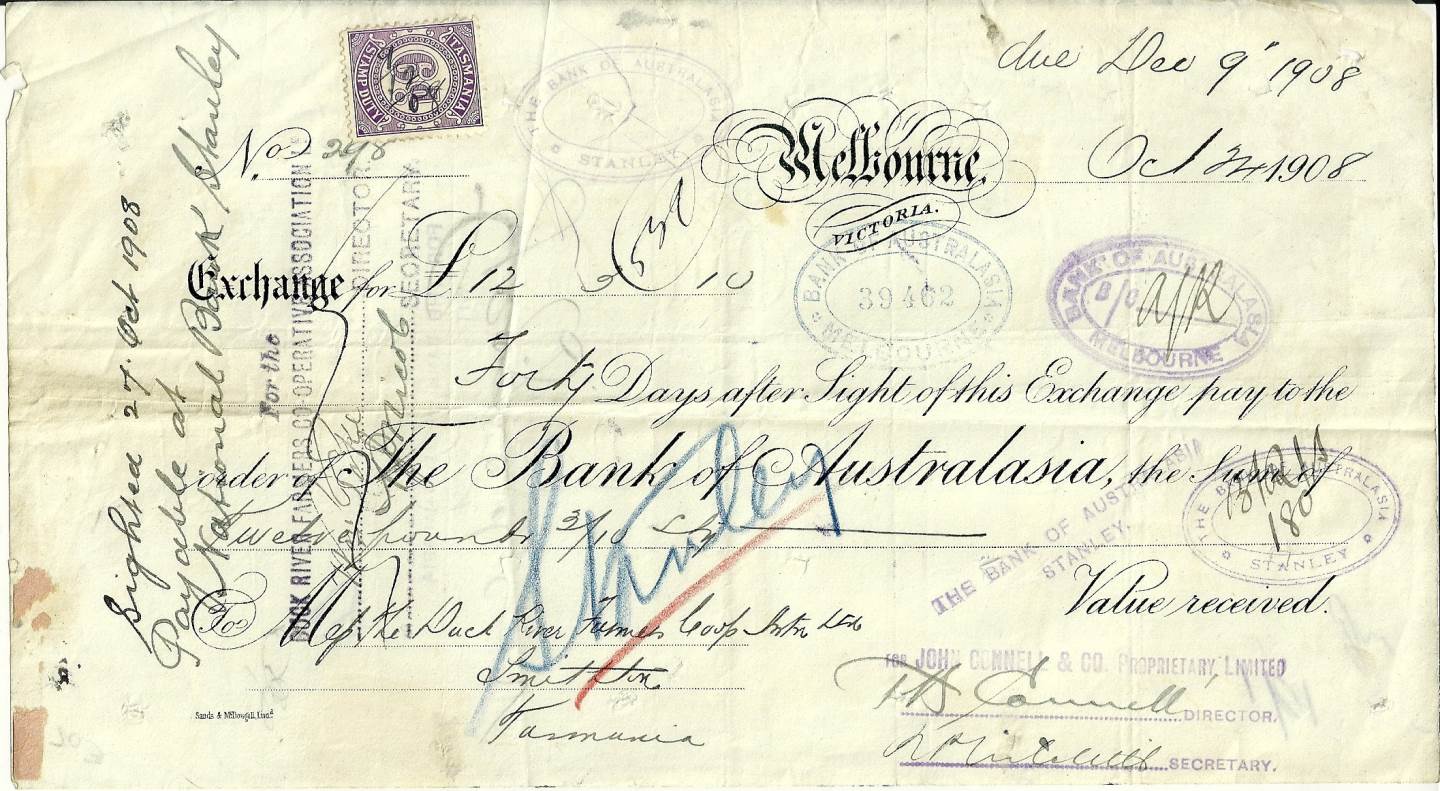 due Dec 9" 1908
TASMANIA
STAMP DUTY
THE BANK OF AUSTRALASIA
STANLEY
No. 24/8
Melbourne,
VICTORIA.
Oct 24 1908
Exchange for £12 3 10
BANK OF AUSTRALASIA
39462
MELBOURNE
BANK OF AUSTRALASIA
B/C
MELBOURNE
Forty Days after Sight of this Exchange pay to the
order of The Bank of Australasia, the Sum of
Twelve pounds 3/10
THE BANK OF AUSTRALASIA
STANLEY.
THE BANK OF AUSTRALASIA
STANLEY
Stanley
Value received.
To Mess the Duck River Farmers Coop
Smithton
Tasmania
FOR JOHN CONNELL & CO. PROPRIETARY, LIMITED
Connell
DIRECTOR.
SECRETARY.
Sands & McDougall, Limd.
Sighted 27 Oct 1908
Payable at
National Bank Stanley
For the
DUCK RIVER FARMERS CO-OPERATIVE ASSOCIATION
DIRECTOR
SECRETARY.